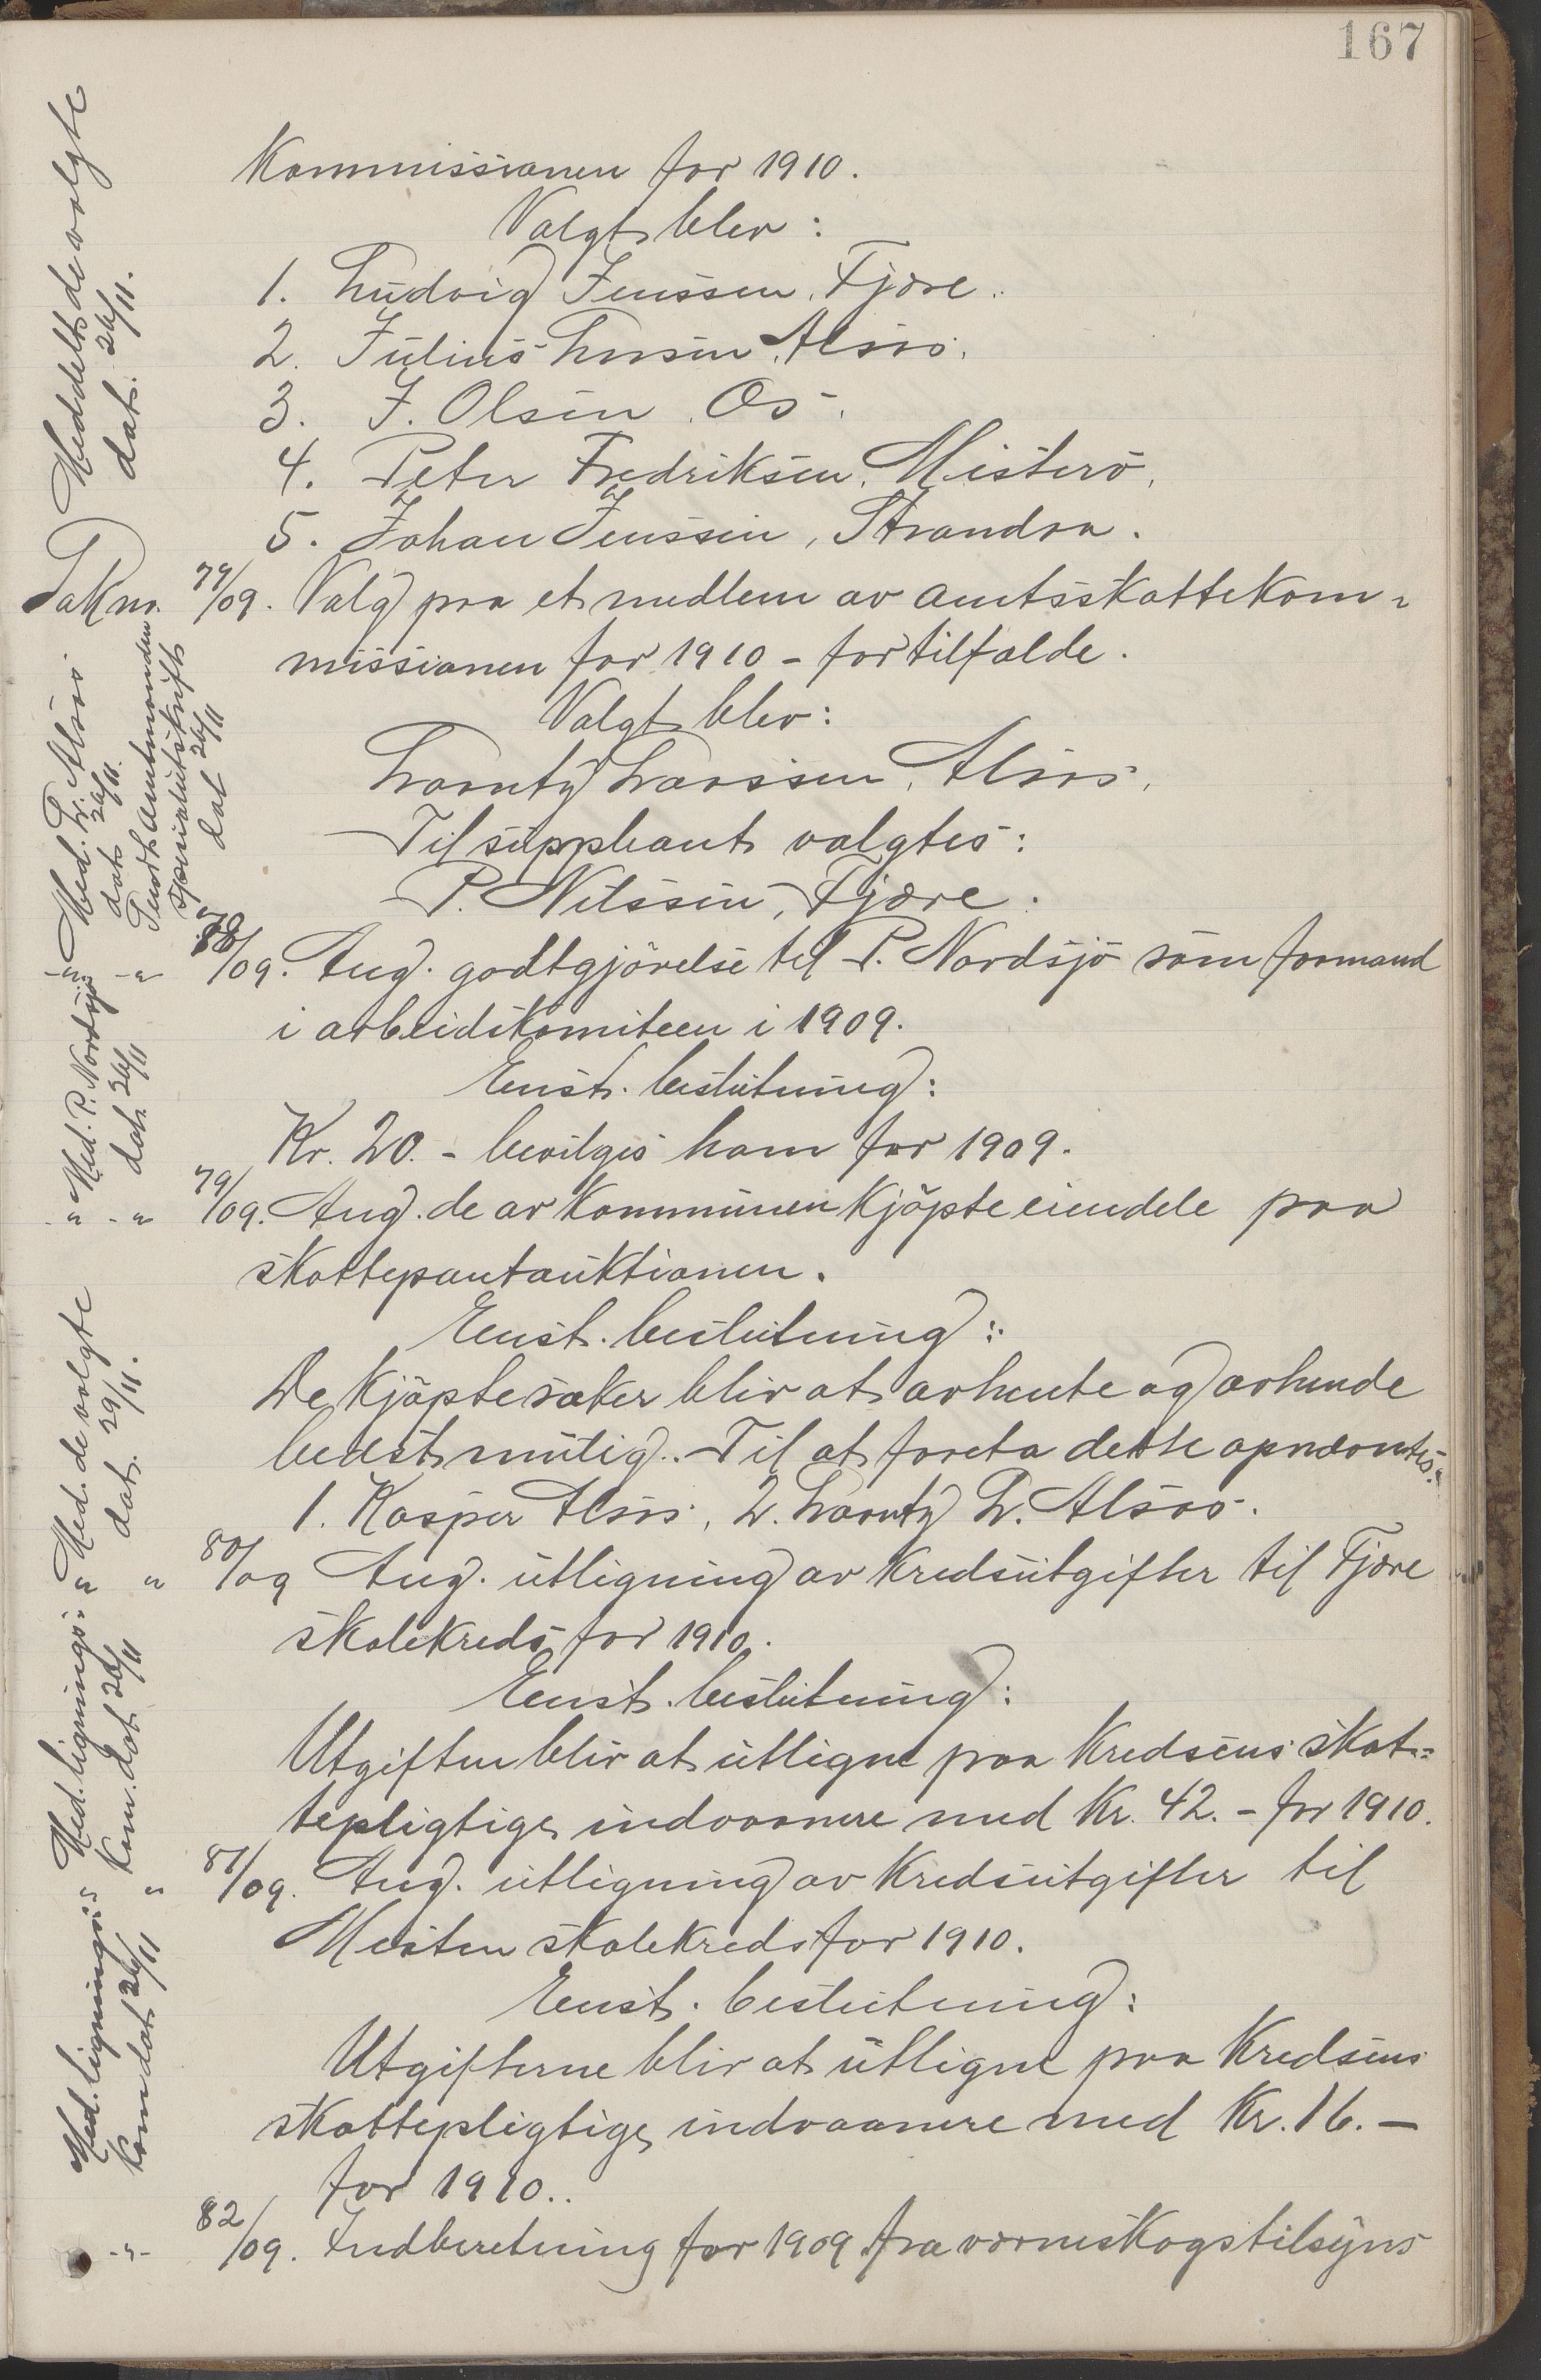 167
Kommissionen for 1910.
Valgt blev:
1. Ludvig Jenssen, Fjære.
2. Julius Larsen, Alsos.
3. J. Olsen, Os.
4. Peter Fredriksen, Misterö.
5. Johan Jenssen, Strandaa.
Sak nr. 77/09. Valg paa et medlem av amtsskattekom-
missionen for 1910 - fortilfælde.
Valgt blev:
Laurity Larssen, Alsos.
Til suppleant valgtes:
P. Nilssen, Fjære.
" " 78/09. Ang. godtgjörelse til P. Nordsjö som formand
i arbeidskomiteen i 1909.
Enst. beslutning:
Kr. 20.- bevilges ham for 1909.
" " 79/09. Ang. de av kommunen kjöpte eiendele paa
skattepantauktionen.
Enst. beslutning:
De kjöpte saker blir at avhente og avhende
bedst mulig. Til at foreta dette opnævntes:
1. Kasper Alsos, 2. Laurity L. Alsos.
" " 80/09 Ang. utligning av kredsutgifter til Fjære
skolekreds for 1910.
Enst. beslutning:
Utgiften blir at utligne paa kredsens skat-
tepligtige indvaanere med Kr. 42.- for 1910.
" " 81/09. Ang. utligning av kredsutgifter til
Misten skolekreds for 1910.
Enst. beslutning:
Utgifterne blir at utligne paa kredsens
skattepligtige indvaanere med Kr. 16.-
for 1910.
" 82/09. Indberetning for 1909 fra værneskogstilsyns
Meddelt de valgte
dat. 26/11.
Med. L. Alsos
dat. 26/11.
Sendt amtmanden
specialutskrift
dat 26/11
Med. P. Nordsjö
dat. 26/11
Med. de valgte
dat. 29/11.
Med. lignings-
kom. dat 26/11
Med. lignings-
kom dat 26/11